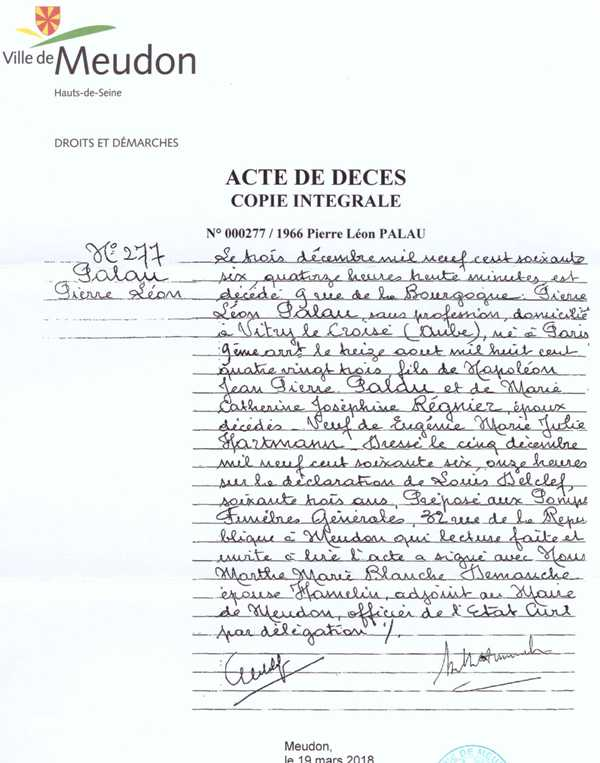 Ville de Meudon
Hauts-de-Seine
DROITS ET DÉMARCHES
ACTE DE DECES
COPIE INTEGRALE
N° 000277 / 1966 Pierre Léon PALAU
N° 277
Palau
Pierre Léon
Le trois décembre mil neuf cent soixante
six, quatorze heures trente minutes est
décédé 9 rue de la Bourgogne : Pierre
Léon Palau, sans profession, domicilié
à Vitry le Croisé (Aube), né à Paris
9ème arrt le treize aout mil huit cent
quatre vingt trois, fils de Napoléon
Jean Pierre Palau et de Marie
Catherine Joséphine Régnier, époux
décédés - Veuf de Eugénie Marie Julie
Hartmann - Dressé le cinq décembre
mil neuf cent soixante six, onze heures
sur la déclaration de Louis Delclef,
soixante trois ans, Préposé aux Pompes
Funèbres Générales, 32 rue de la Répu
blique à Meudon qui lecture faite et
invité à lire l'acte a signé avec Nous
Marthe Marie Blanche Demanche
épouse Hamelin, adjoint au Maire
de Meudon, officier de l'Etat Civil
par délégation ./.
Meudon,
le 19 mars 2018